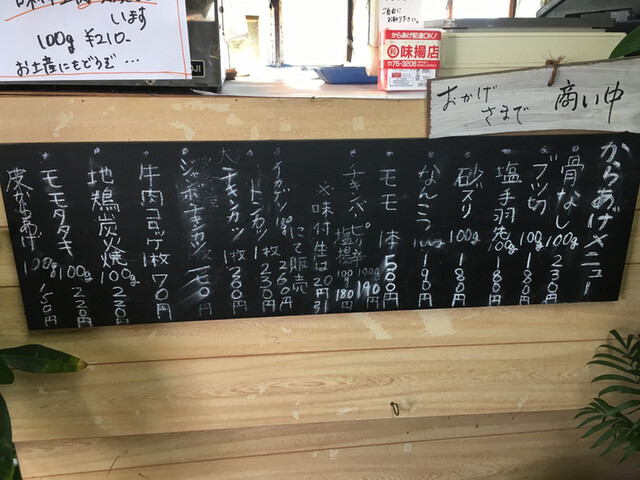 います
100g ¥210-
お土産にもどうぞ…
からあげ配達OK!
味揚店
75-3206
おかげさまで 商い中
からあげメニュー
骨なし 100g 230円
ブツ切 100g 180円
塩手羽先 100g 180円
砂ズリ 100g 180円
なんこつ 100g 190円
モモ 1本 500円
チキンバー
100g 190円
塩 100g 180円
※味付生は20円引
にて販売
イカゲソ
トンカツ 1枚 230円
チキンカツ 1枚
牛肉コロッケ 1枚 70円
地鶏炭火焼 100g 230円
モモタタキ 100g
皮からあげ 100g 150円